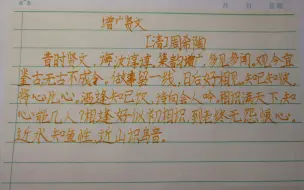 增广贤文
[清]周希陶
昔时贤文,诲汝谆谆,集韵增广,多见多闻。观今宜
鉴古,无古不成今。做事留一线,日后好相见。知己知彼,
将心比心。酒逢知己饮,诗向会人吟。相识满天下,知
心能几人?相逢好似初相识,到老终无怨恨心。
近水知鱼性,近山识鸟音。